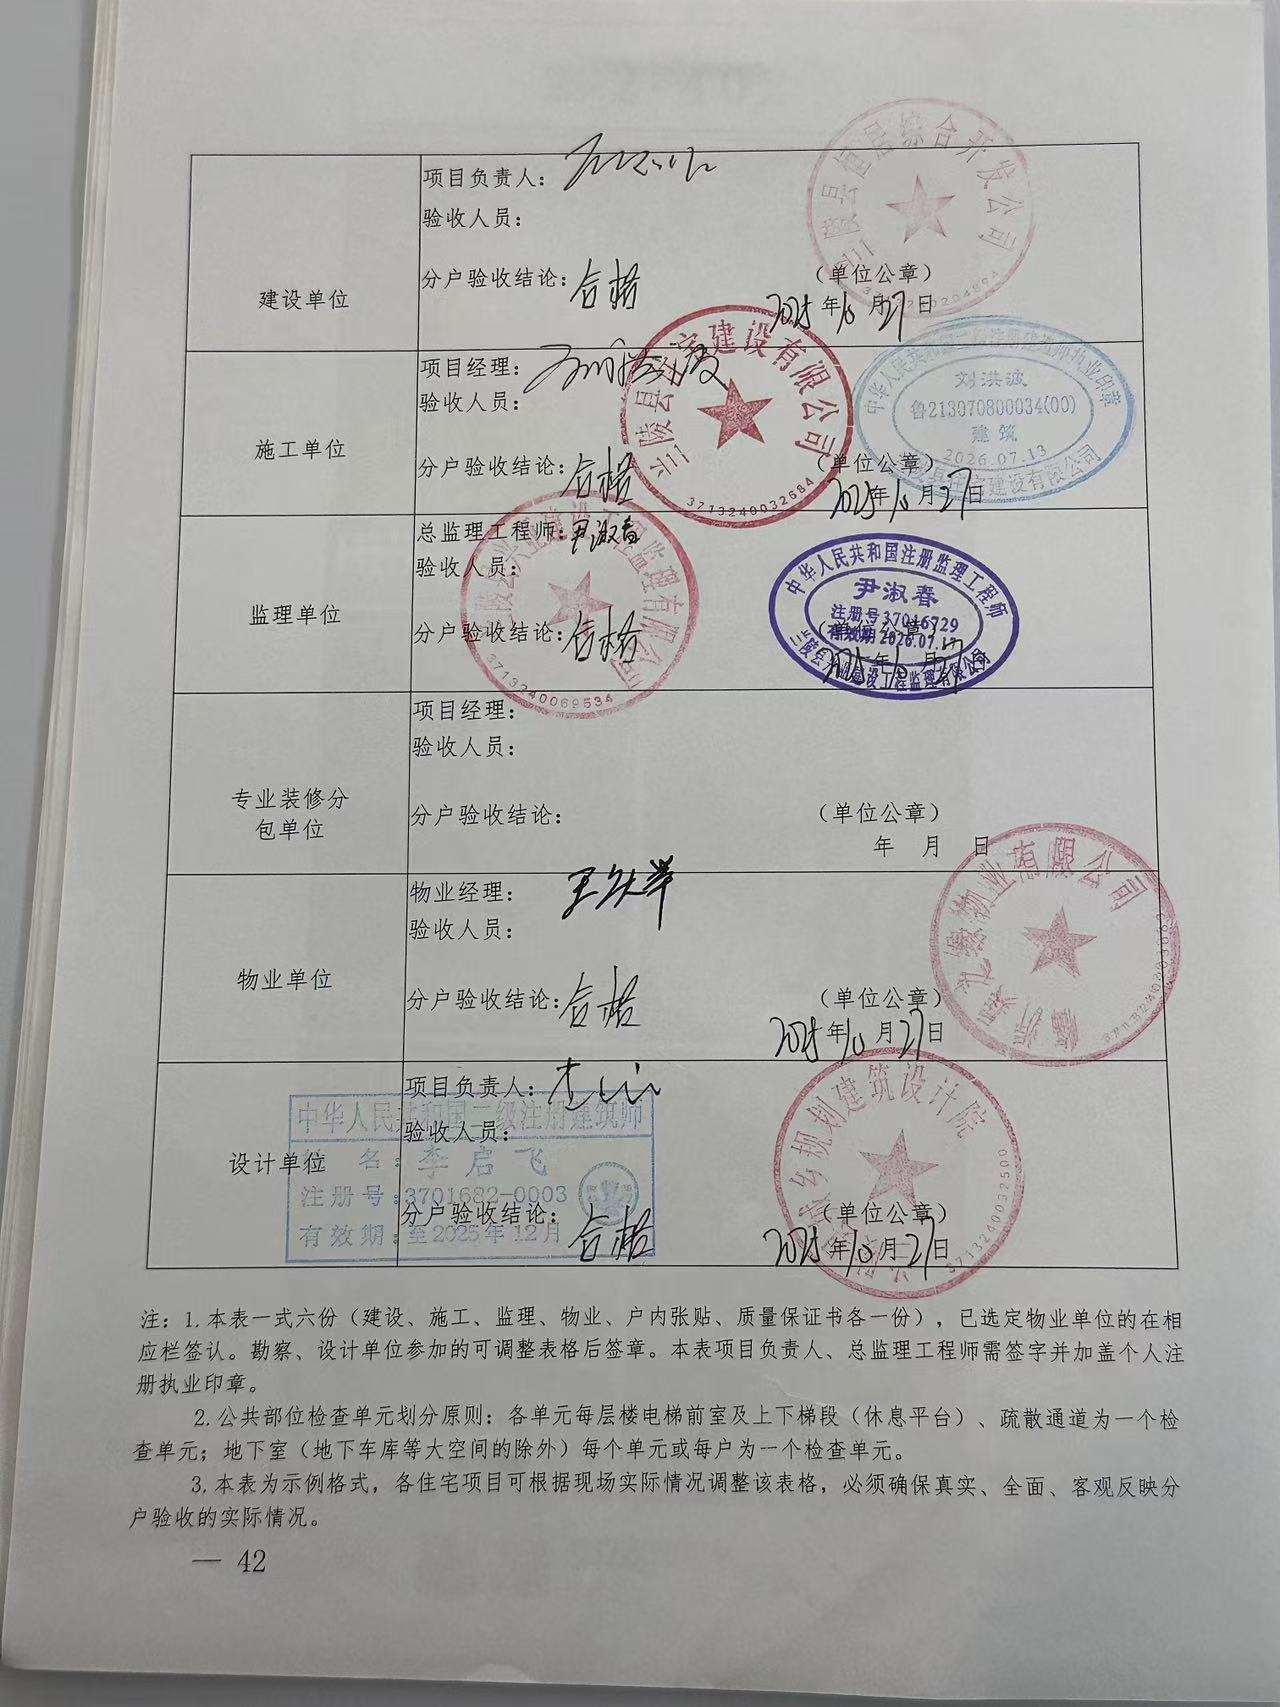 建设单位
项目负责人：
验收人员：
分户验收结论：合格
（单位公章）
2025年10月27日
综合开发公司
施工单位
项目经理：
验收人员：
分户验收结论：合格
（单位公章）
2025年10月27日
兰陵县住宅建设有限公司
3713240032684
刘洪波
鲁213070800034(00)
建筑
2026.07.13
监理单位
总监理工程师：尹淑春
验收人员：
分户验收结论：合格
（单位公章）
2025年10月27日
3713240069534
中华人民共和国注册监理工程师
尹淑春
注册号37016729
有效期2026.07.17
专业装修分
包单位
项目经理：
验收人员：
分户验收结论：
（单位公章）
年 月 日
物业单位
物业经理：
验收人员：
分户验收结论：合格
（单位公章）
2025年10月27日
物业有限公司
设计单位
项目负责人：
验收人员：
分户验收结论：合格
（单位公章）
2025年10月27日
城乡规划建筑设计院
3713240032500
中华人民共和国二级注册建筑师
姓 名：李启飞
注册号：3701682-0003
有效期：至2025年12月
注：1.本表一式六份（建设、施工、监理、物业、户内张贴、质量保证书各一份），已选定物业单位的在相
应栏签认。勘察、设计单位参加的可调整表格后签章。本表项目负责人、总监理工程师需签字并加盖个人注
册执业印章。
2.公共部位检查单元划分原则：各单元每层楼电梯前室及上下梯段（休息平台）、疏散通道为一个检
查单元；地下室（地下车库等大空间的除外）每个单元或每户为一个检查单元。
3.本表为示例格式，各住宅项目可根据现场实际情况调整该表格，必须确保真实、全面、客观反映分
户验收的实际情况。
— 42